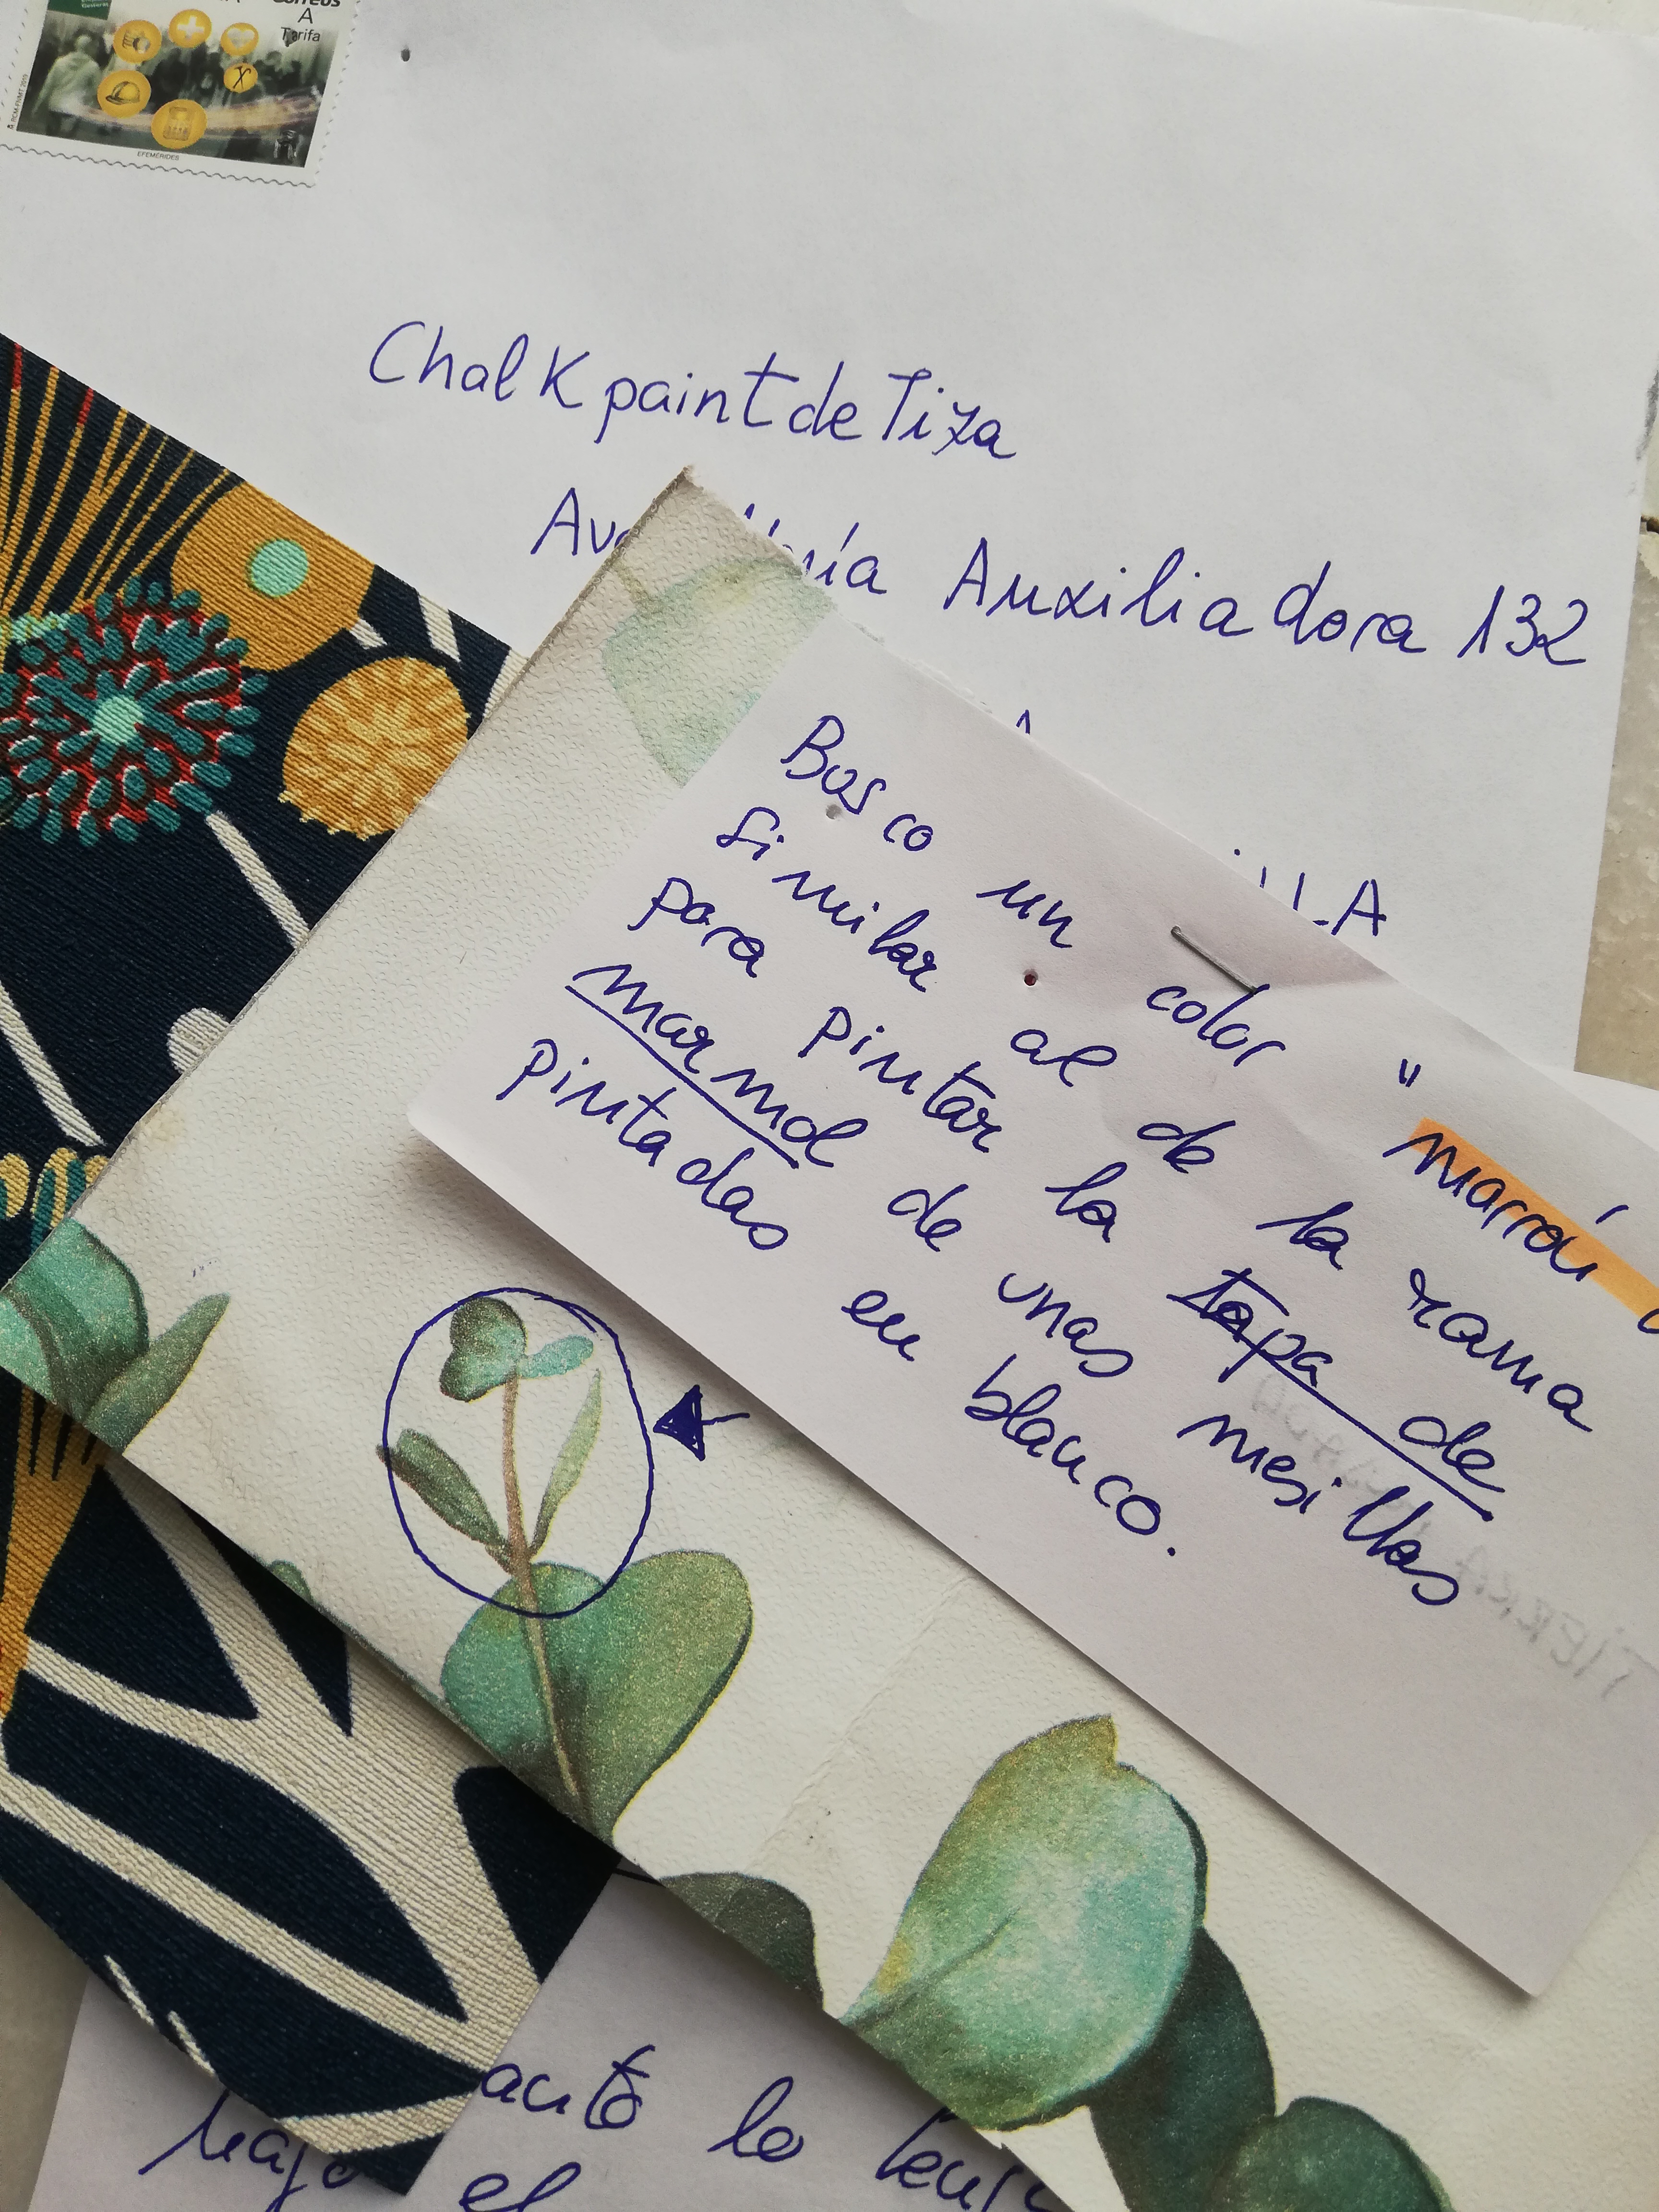 Correos
A
Tarifa
EFEMÉRIDES
Chalk paint de Tiza
Auxiliadora 132
Busco un color "marrón
similar al de la rama
para pintar la tapa de
marmol de unas mesillas
pintadas en blanco.
TIERRA
lo
el